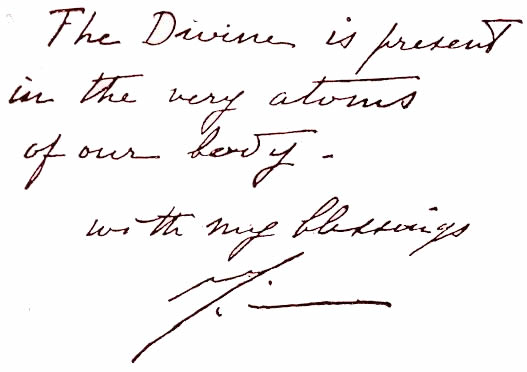 The Divine is present
in the very atoms
of our body.
with my blessings